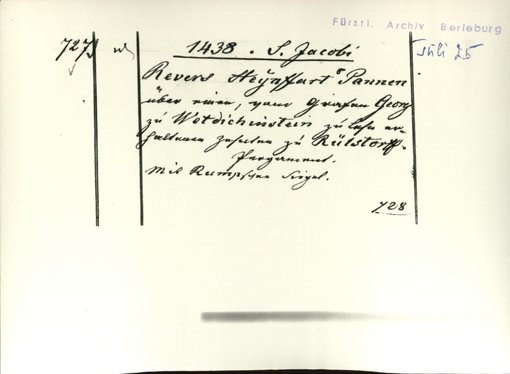 Fürstl. Archiv Berleburg
727
1438. S. Jacobi
Juli 25
Revers Heynffart Pannen
über einen, vom Grafen Georg
zu Wetdichinstein zu Lehn er-
haltenen Zehnten zu Rülstorff.
Pergament.
Mit Rumpfschen Siegel.
728